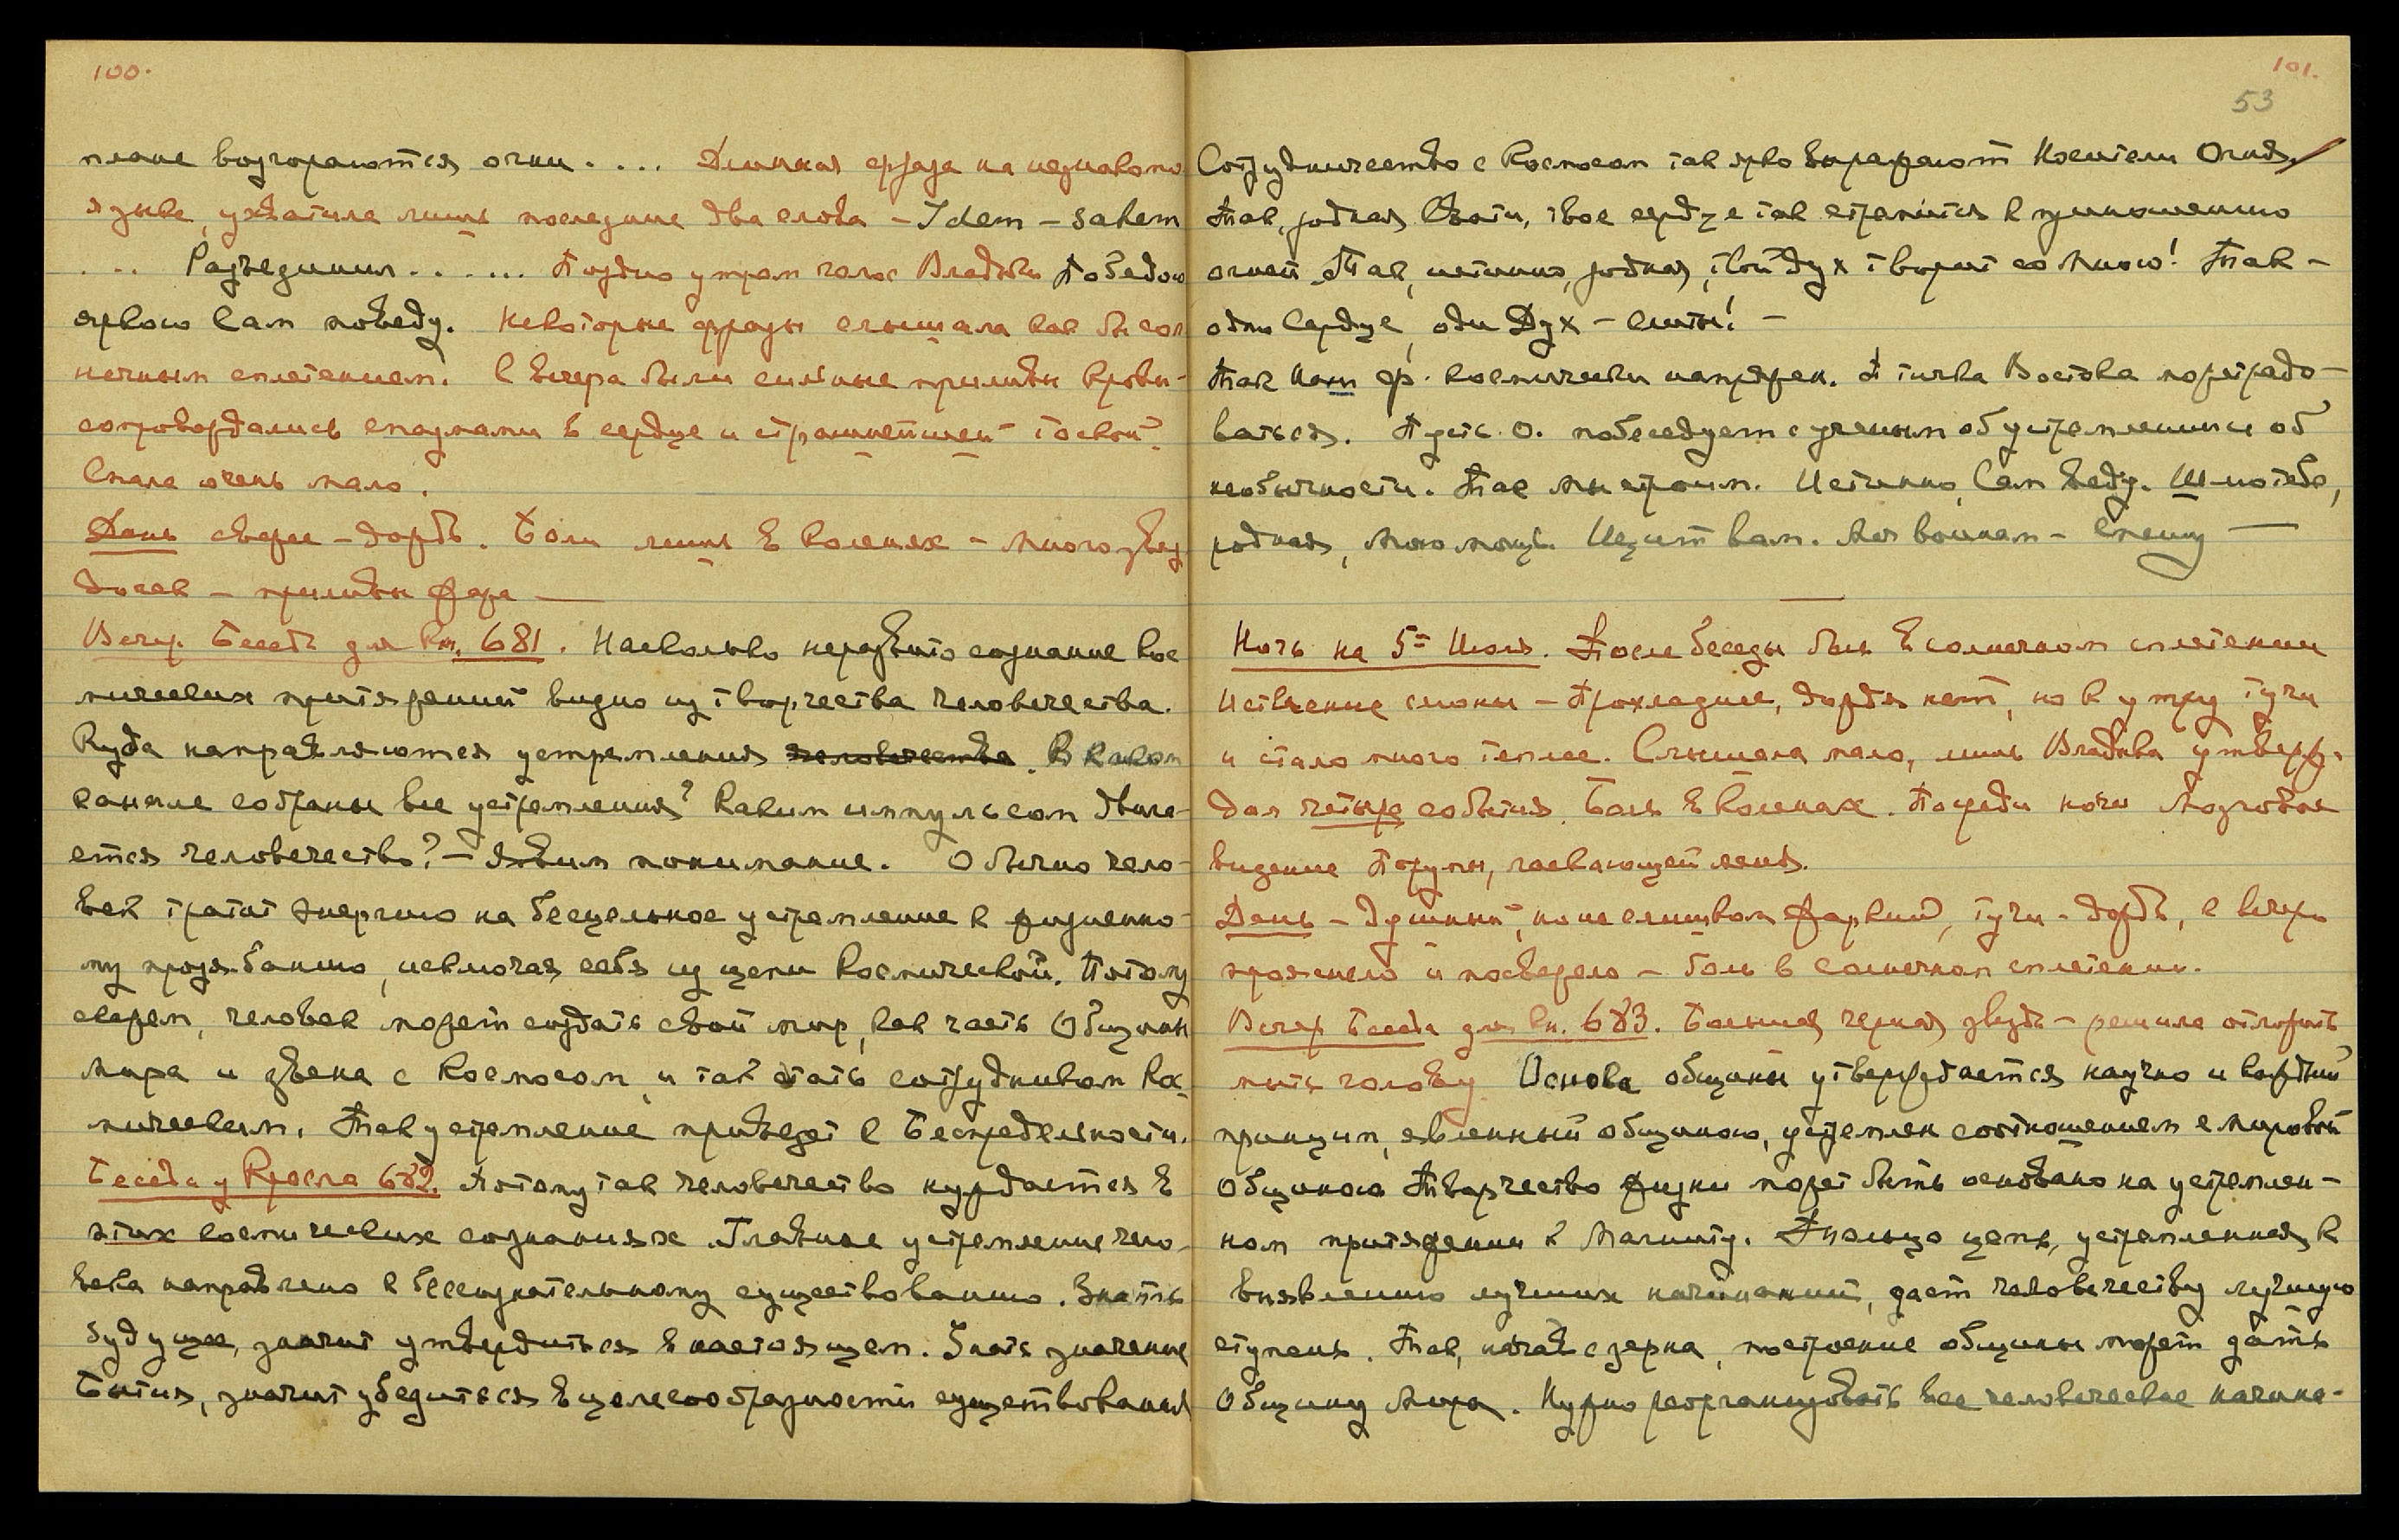 100.
плане возгораются огни. ... Длинная фраза на незнакомо
языке, ухватила лишь последние два слова – Idem – sahem
... Разъединил...... Поздно утром голос Владыки Победою
яркою Сам поведу. Некоторые фразы слышала как бы сол
нечным сплетением. С вечера были сильные приливы крови –
сопровождались спазмами в сердце и страшнейшей тоской.
Спала очень мало.
День свеже – дождь. Боли лишь в коленях – много звез
дочек – приливы жара —
Вечер. Беседа для Кн. 681. Насколько неразвито сознание кос
мических притяжений видно из творчества человечества.
Куда направляются устремления человечества. В каком
канале собраны все устремления? Каким импульсом движе-
ется человечество? – Явим понимание. Обычно чело-
век тратит энергию на бесцельное устремление к жизненно-
му прозябанию, исключая себя из цепи космической. Потому
скажем, человек может создать свой мир, как часть Общины
Мира и звена с Космосом, и так стать сотрудником Кос
мическим. Так устремление приведет к Беспредельности.
Беседа у Кресла 682. Потому так человечество нуждается в
этих космических сознаниях. Главное устремление чело-
века направлено к бессознательному существованию. Знать
будущее, значит утвердиться в настоящем. Знать значение
Бытия, значит убедиться в целесообразности существования
101.
53
Сотрудничество с Космосом так ярко выражают Носители Огня.
Так, родная Свати, твое сердце так стремится к приношению
огней. Так, истинно, родная, твой дух творит со Мною! Так –
одно Сердце, один Дух – слиты! –
Так Наш фр. космически напряжен. Птичка Востока может радо-
ваться. Пусть О. побеседует с ученым об устремлении и об
необычности. Так мы строим. Истинно, Сам веду. Шлю тебе,
родная, Мою мощь. Щит вам. Мы воинам – Спешу —
Ночь на 5ое Июля. После беседы был в солнечном сплетении
Истечение слюны – Прохладнее, дождя нет, но к утру тучи
и стало много теплее. Слышала мало, лишь Владыка утверж-
дал четыре события. Боль в коленах. Посреди ночи Мозговое
видение Порумы, ласкающей меня.
День – Душный, но не слишком жаркий, тучи – дождь, к вечеру
прояснело и посвежело – боль в солнечном сплетении.
Вечер Беседа для Кн. 683. Большая черная звезда – решила отложить
мыть голову. Основа общины утверждается научно и каждый
принцип, явленный общиною, устремлен соотношением с мировой
Общиною. Творчество жизни может быть основано на устремлен-
ном притяжении к Магниту. Только цепь, устремленная к
выявлению лучших начинаний, дает человечеству лучшую
ступень. Так, начав с зерна, построение общины может дать
Общину Мира. Нужно реорганизовать все человеческие начина-